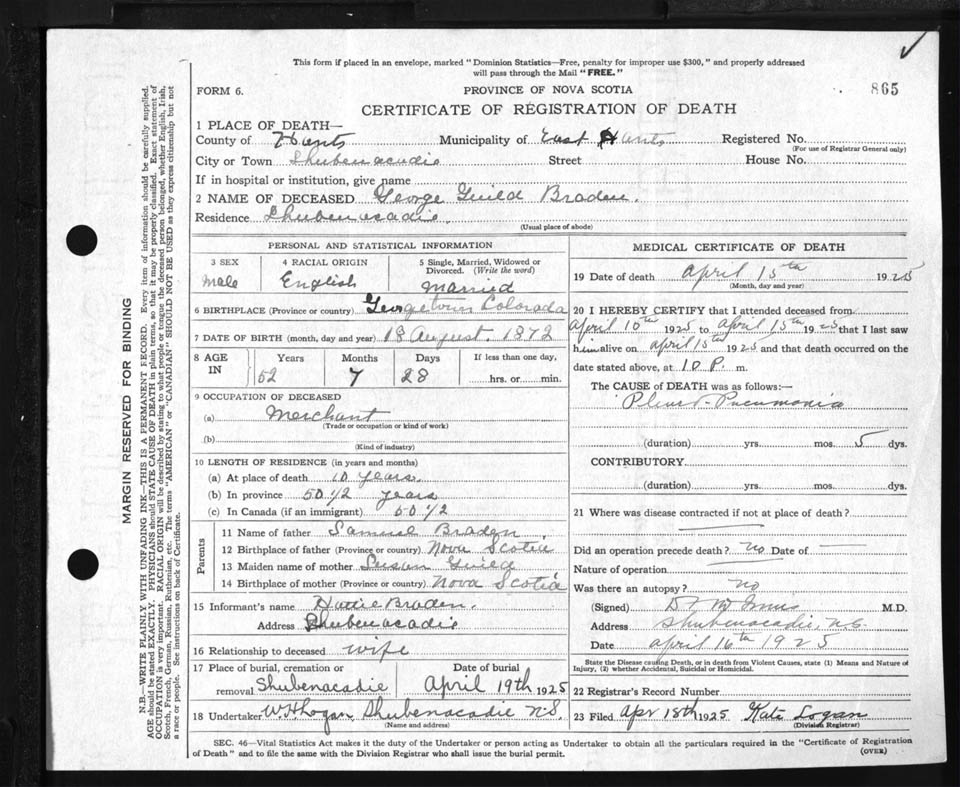 This form if placed in an envelope, marked "Dominion Statistics—Free, penalty for improper use $300," and properly addressed
will pass through the Mail "FREE."
FORM 6.
PROVINCE OF NOVA SCOTIA
865
CERTIFICATE OF REGISTRATION OF DEATH
1 PLACE OF DEATH—
County of Hants Municipality of East Hants Registered No.
(For use of Registrar General only)
City or Town Shubenacadie Street House No.
If in hospital or institution, give name
2 NAME OF DECEASED George Guild Braden.
Residence Shubenacadie.
(Usual place of abode)
PERSONAL AND STATISTICAL INFORMATION
3 SEX
Male
4 RACIAL ORIGIN
English
5 Single, Married, Widowed or
Divorced. (Write the word)
Married
6 BIRTHPLACE (Province or country) Georgetown Colorada
7 DATE OF BIRTH (month, day and year) 18 August. 1872
8 AGE IN
Years Months Days If less than one day,
52 7 28 hrs. or min.
9 OCCUPATION OF DECEASED
(a) Merchant
(Trade or occupation or kind of work)
(b)
(Kind of industry)
10 LENGTH OF RESIDENCE (in years and months)
(a) At place of death 10 years.
(b) In province 50 1/2 years
(c) In Canada (if an immigrant) 50 1/2
Parents
11 Name of father Samuel Braden
12 Birthplace of father (Province or country) Nova Scotia
13 Maiden name of mother Susan Guild
14 Birthplace of mother (Province or country) Nova Scotia
15 Informant's name Hattie Braden.
Address Shubenacadie
16 Relationship to deceased wife
17 Place of burial, cremation or Date of burial
removal Shubenacadie April 19th 1925
18 Undertaker W H Logan, Shubenacadie N.S.
(Name and address)
MEDICAL CERTIFICATE OF DEATH
19 Date of death April 15th 1925
(Month, day and year)
20 I HEREBY CERTIFY that I attended deceased from
April 10th 1925 to April 15th 1925 that I last saw
him alive on April 15th 1925 and that death occurred on the
date stated above, at 10 P. m.
The CAUSE of DEATH was as follows:—
Pleuro-Pneumonia
(duration) yrs. mos. 5 dys.
CONTRIBUTORY
(duration) yrs. mos. dys.
21 Where was disease contracted if not at place of death?
Did an operation precede death? no Date of
Nature of operation
Was there an autopsy? no
(Signed) M.D.
Address Shubenacadie, N.S.
Date April 16th 1925
State the Disease causing Death, or in death from Violent Causes, state (1) Means and Nature of
Injury, (2) whether Accidental, Suicidal or Homicidal.
22 Registrar's Record Number
23 Filed Apr 18th 1925 Kate Logan
(Division Registrar)
SEC. 46—Vital Statistics Act makes it the duty of the Undertaker or person acting as Undertaker to obtain all the particulars required in the "Certificate of Registration
of Death" and to file the same with the Division Registrar who shall issue the burial permit.
(OVER)
MARGIN RESERVED FOR BINDING
N.B.—WRITE PLAINLY WITH UNFADING INK—THIS IS A PERMANENT RECORD. Every item of information should be carefully supplied.
AGE should be stated EXACTLY. PHYSICIANS should STATE CAUSE OF DEATH in plain terms, so that it may be properly classified. Exact statement of
OCCUPATION is very important. RACIAL ORIGIN will be described by stating to what people or tongue the deceased person belonged, whether English, Irish,
Scotch, French, German, Russian, Ruthenian, etc. The terms "AMERICAN" or "CANADIAN" SHOULD NOT BE USED as they express citizenship but not
a race or people. See instructions on back of Certificate.